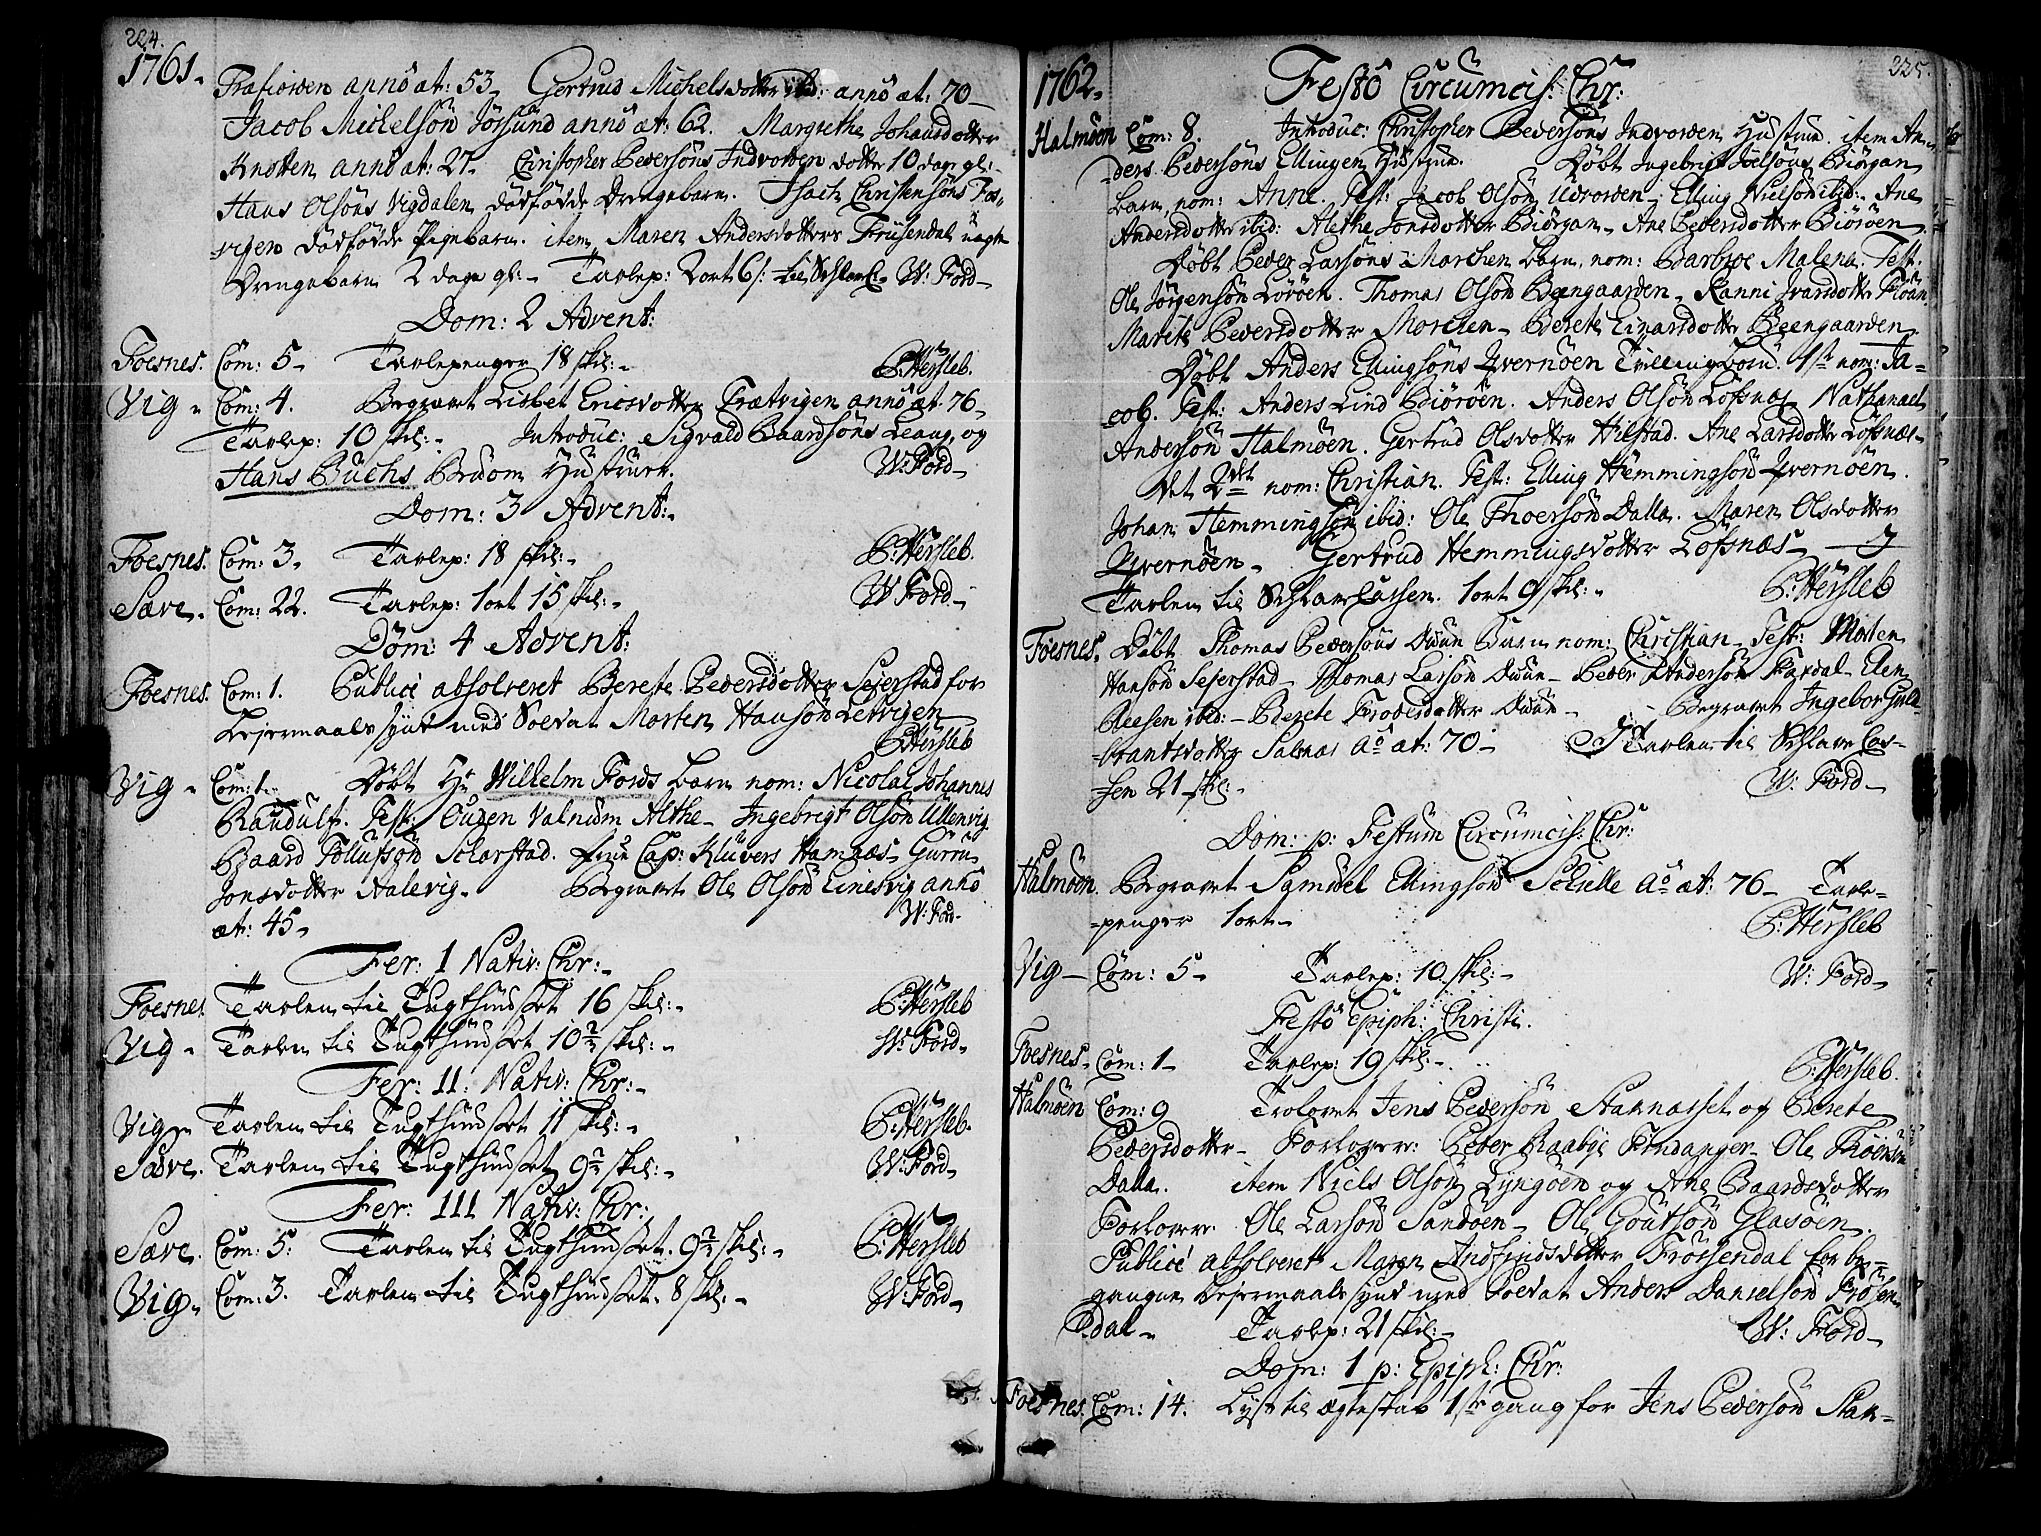 224.
1761.
Trafiorden anno æt: 53. Gertrud Michelsdotter ibid: anno æt: 70
Jacob Michelsön Jörsund anno æt: 62. Margrethe Johansdotter
Knotten anno æt: 27. Christopher Pedersöns Indvorden dotter 10 dage gl:
Hans Olsöns Vigdalen dödfödde Drengebarn. Isach Christensöns Fos-
vigen dödfödde Pigebarn. item Maren Andersdotters Frusendal uægte
Drengebarn 2 dage gl: Tavlep: 2 ort 6 s: til W: Ford
Dom: 2 Advent:
Foesnes. Com: 5 Tavlepenger 18 skil: P: Hersleb.
Vig Com: 4. Begravet Lisbet Ericsdotter Trætvigen anno æt: 76
Tavlep: 10 skil: Introduc: Sigvald Baardsöns Leang, og
Hans Buchs Bredom Hustruer. W: Ford
Dom: 3 Advent:
Foesnes. Com: 3. Tavlep: 18 skil: P: Hersleb.
Sævr. Com: 22. Tavlep: 1 ort 15 skil: W: Ford
Dom: 4 Advent:
Foesnes. Com: 1. Publicè absolveret Berete Pedersdotter Sejerstad for
Lejermaals synd med Soldat Morten Hansön Letvigen
P: Hersleb
Vig Com: 1. Döbt Hr Wilhelm Fords barn nom: Nicolai Johannes
Randulf. Test: Ouden Valnum Althe Ingebrigt Olsön Ullenvig
Baard Tollufsön Scharstad. Frue Cap: Klüvers Hamnæs Gurru
Jonsdotter Aalevig. Begravet Ole Olsön Linesvig anno
æt: 45 W: Ford
Fer: 1 Nativ: Chr:
Foesnes. Tavlen til Tugthuuset 16 skil: P: Hersleb
Vig Tavlen til Tugthuuset 10 skil: W: Ford
Fer: 11: Nativ: Chr:
Vig Tavlen til Tugthuuset 11 skil: P: Hersleb.
Sævr. Tavlen til Tugthuuset 9 skil: W: Ford
Fer: 111 Nativ: Chr:
Sævr. Com: 5: Tavlen til Tugthuuset. 9 skil: P: Hersleb
Vig Com: 3. Tavlen til Tugthuuset. 8 skil: W: Ford
225.
1762. Festo Circumcis: Chr:
Halmöen Com: 8. Introduc: Christopher Pedersöns Indvorden Hustrue. item An-
ders Pedersöns Ellingen Hustrue. Döbt Ingebrigt Joelsöns Biörgan
barn nom: Anne. Test: Jacob Olsön Udvorden Elling Nielsön ibid: Ane
Andersdotter ibid: Alethe Jonsdotter Biörgan Ane Pedersdotter Biöröen
Döbt Peder Larsöns Marchen barn. nom: Barbroe Malena. Test.
Ole Jörgensön Loröen. Thomas Olsön Beengaarden. Ranni Ivarsdotter
Marete Pedersdotter Morchen Berete Einarsdotter Beengaarden.
Döbt Anders Ellingsöns Qvernöen Tvillingbörn. 1st nom: Ja-
cob. Test: Anders Lind Biöröen. Anders Olsön Löfsnæs Nathanael
Andersön Halmöen. Gertrud Olsdotter Hilstad. Ane Larsdotter Löfsnæs
det 2det nom: Christian. Test: Elling Hemmingsön Qvernöen.
Johan Hemmingsön ibid: Ole Thoersön Dalla. Maren Olsdotter
Qvernöen. Gertrud Hemmingsdotter Löfsnæs
Tavlen til 1 ort 9 skil: P: Hersleb
Foesnes. Döbt Thomas Pedersöns Duun Barn nom: Christian Test: Morten
Hansön Sejerstad Thomas Larsön Duun Peder Andersön Fardal
ibid: Berete Duun Begravet Ingebor Guld-
brantsdotter Salnæs Ao æt: 70 Tavlen til
sen 21 skil: W: Ford
Dom: p: Festum Circumcis: Chr:
Halmöen. Begravet Samuel Ellingsön Schielle Ao æt: 76 Tavle-
penger 1 ort P: Hersleb
Vig Com: 5 Tavlep: 10 skil: W: Ford
Festo Epiph: Christi.
Foesnes. Com: 1 Tavlep: 19 skil: P: Hersleb.
Halmöen Com: 9 Trolovet Jens Pedersön og Berete
Pedersdotter Forlover: Peder Raabye Findanger Ole Thoersön
Dalla. item Niels Olsön Lyngöen og Ane Baardsdotter
Forlover: Ole Larsön Sandöen Ole Goutsön Glasöen.
Publicè absolveret Maren Andfindsdotter Frössendal for be-
gangne Lejermaals synd med Soldat Anders Danielsön Frösen-
dal Tavlep: 21 skil: W: Ford
Dom: 1 p: Epiph: Chr:
Foesnes. Com: 14. Lyst til ægteskab 1ste gang for Jens Pedersön